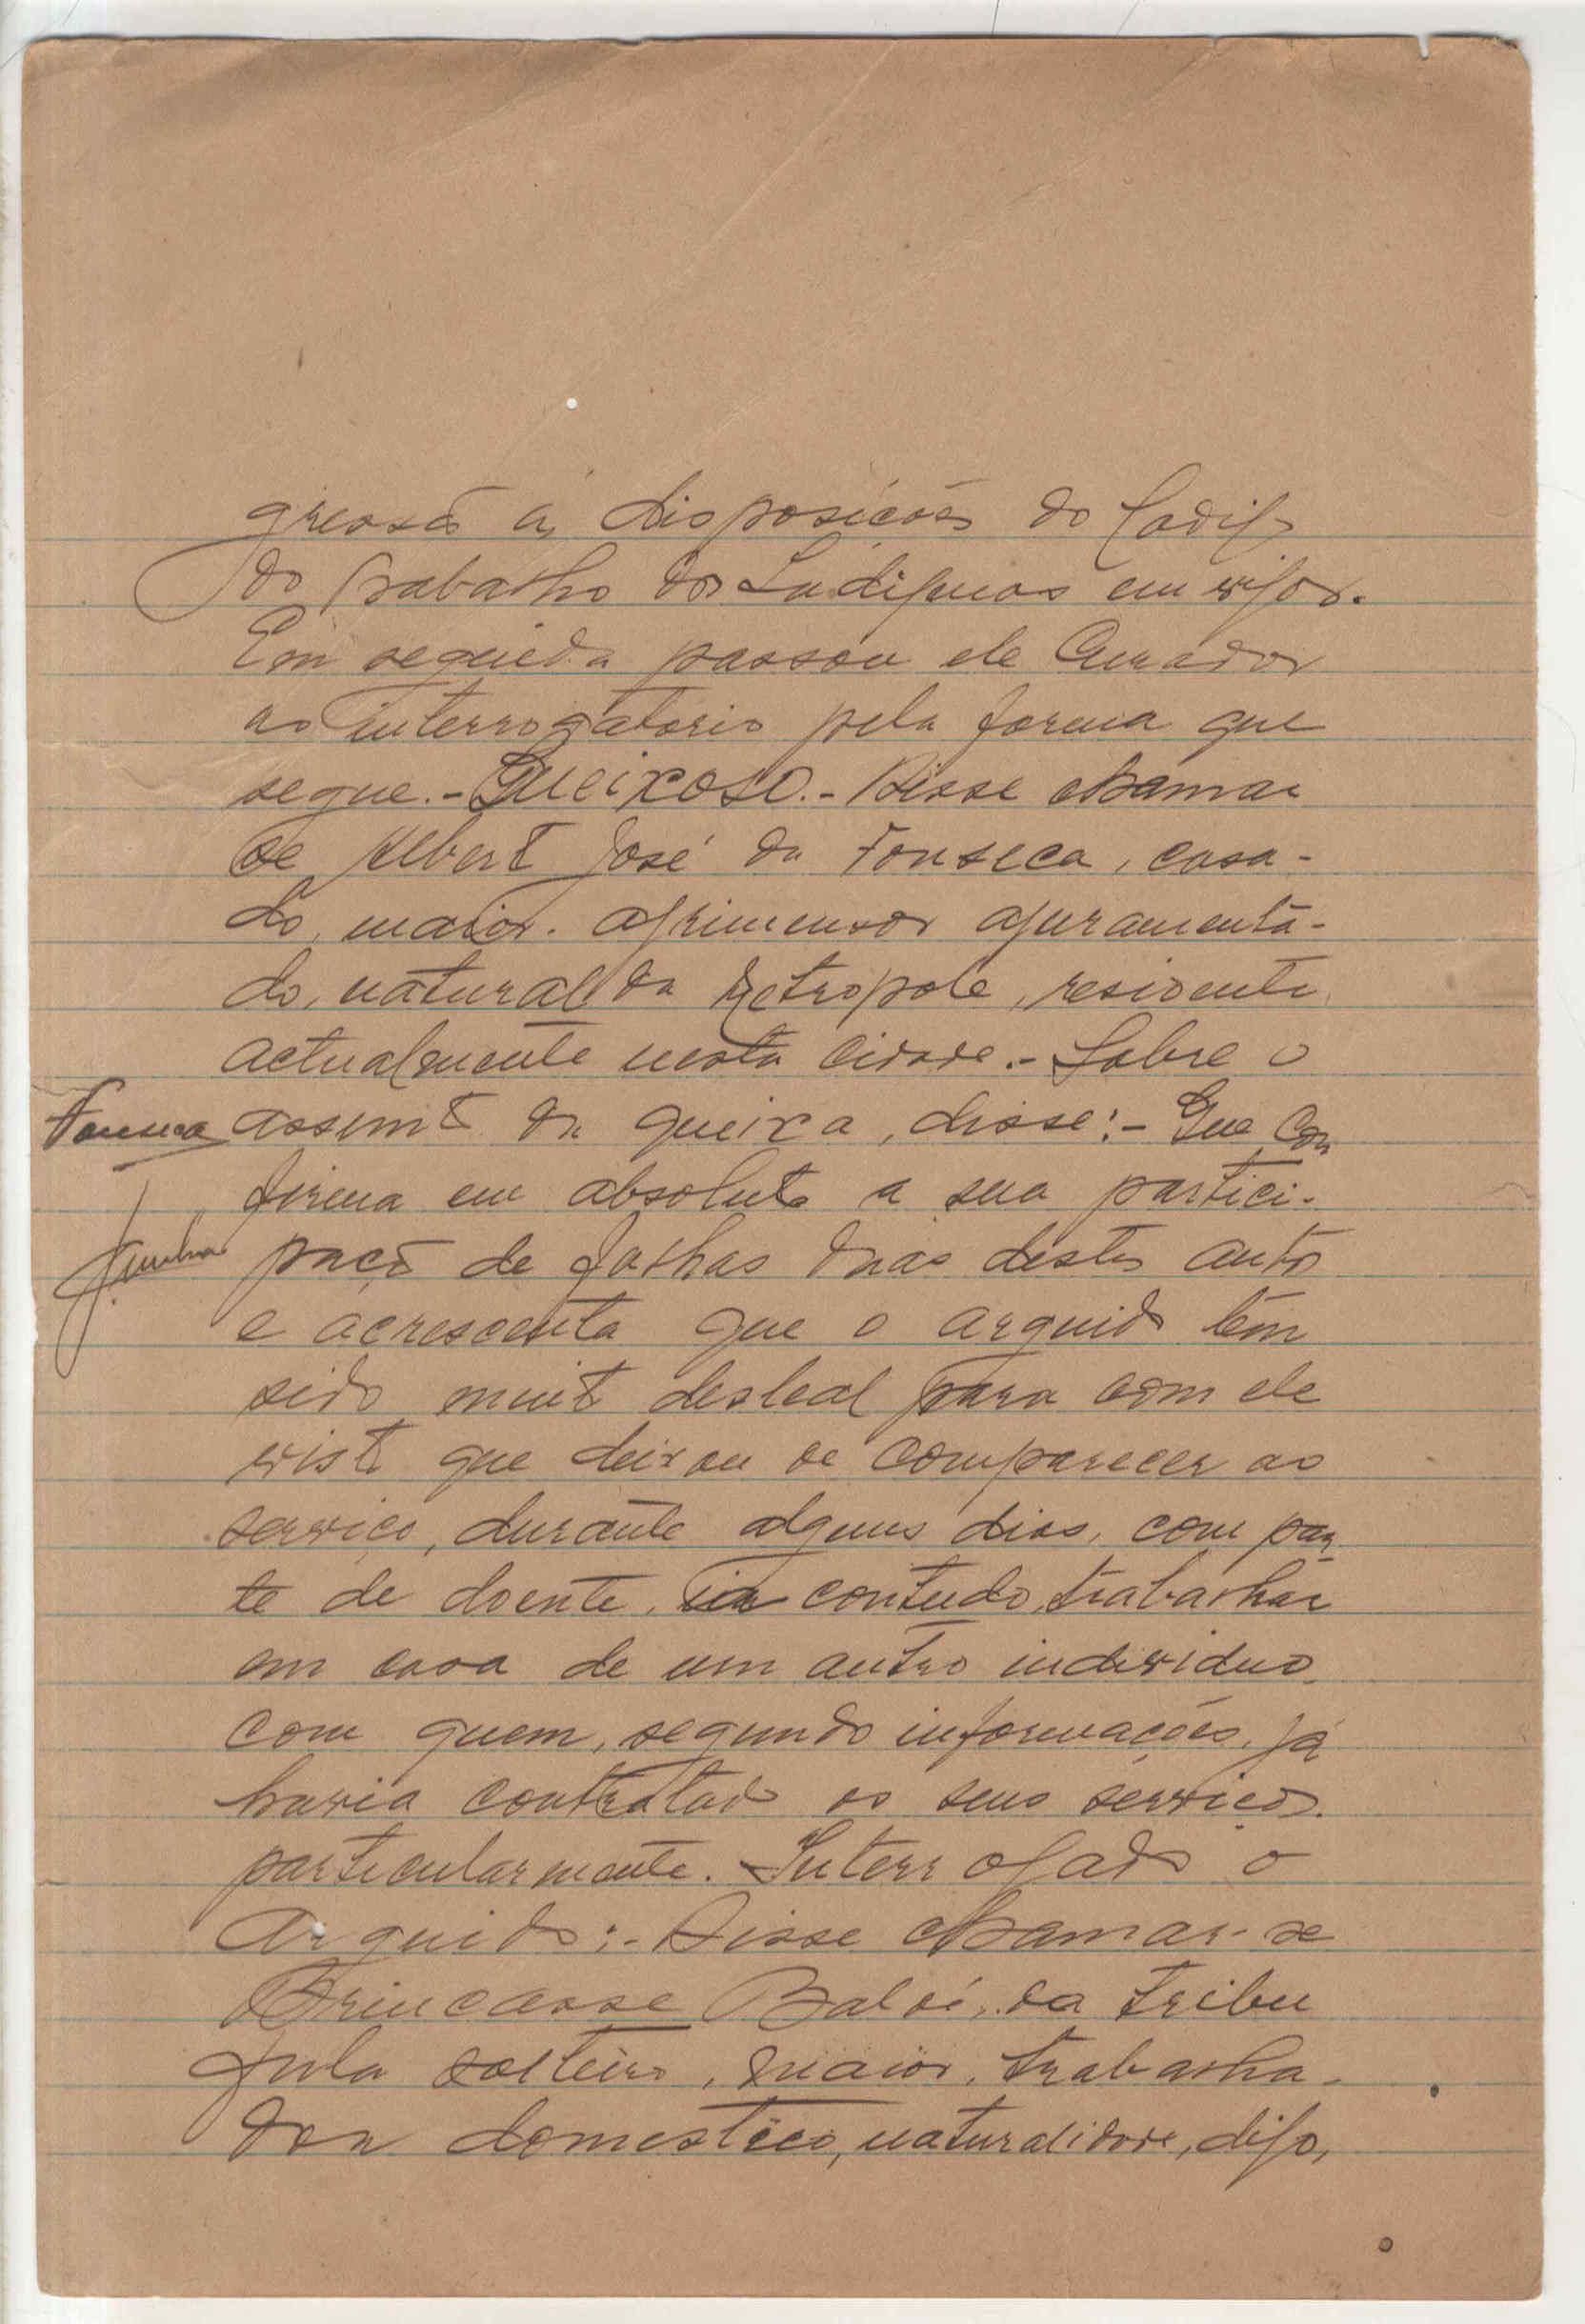 gressão ás disposições do Codigo
do trabalho dos Indigenas em vigor.
Em seguida passou ele Curador
ao interrogatorio pela forma que
segue.- Queixoso.- Disse chamar
se Alberto José da Fonseca, casa-
do, maior. agrimensor ajuramenta-
do, natural da Metropole, residente
actualmente nesta cidade.- Sobre o
Fonseca assunto da queixa, disse:- Que con
firma em absoluto a sua partici-
pação de folhas duas destes autos
e acrescenta que o arguido tem
sido muito desleal para com ele
visto que deixou de comparecer ao
serviço, durante alguns dias, com par-
te de doente, ia contudo, trabalhar
em casa de um outro individuo
com quem, segundo informações, já
havia contratado os seus serviços
particularmente. Interrogado o
Arguido:- Disse chamar-se
Brincasse Baldé, da tribu
fula solteiro, maior, trabalha-
dor domestico, naturalidade, digo,